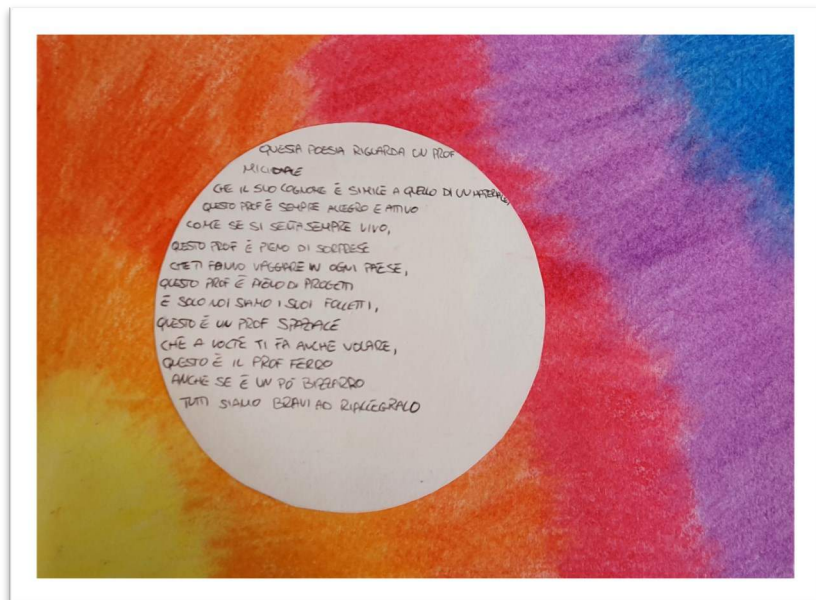 QUESTA POESIA RIGUARDA UN PROF
MICIDIALE
CHE IL SUO COGNOME È SIMILE A QUELLO DI UN MATERIALE,
QUESTO PROF È SEMPRE ALLEGRO E ATTIVO
COME SE SI SENTA SEMPRE VIVO,
QUESTO PROF È PIENO DI SORPRESE
CHE TI FANNO VAGGARE IN OGNI PAESE,
QUESTO PROF È PIENO DI PROGETTI
E SOLO NOI SIAMO I SUOI FOLLETTI,
QUESTO È UN PROF SPAZIALE
CHE A VOLTE TI FA ANCHE VOLARE,
QUESTO È IL PROF FERRO
ANCHE SE È UN PÓ BIZZARRO
TUTTI SIAMO BRAVI AD RIALLEGRALO